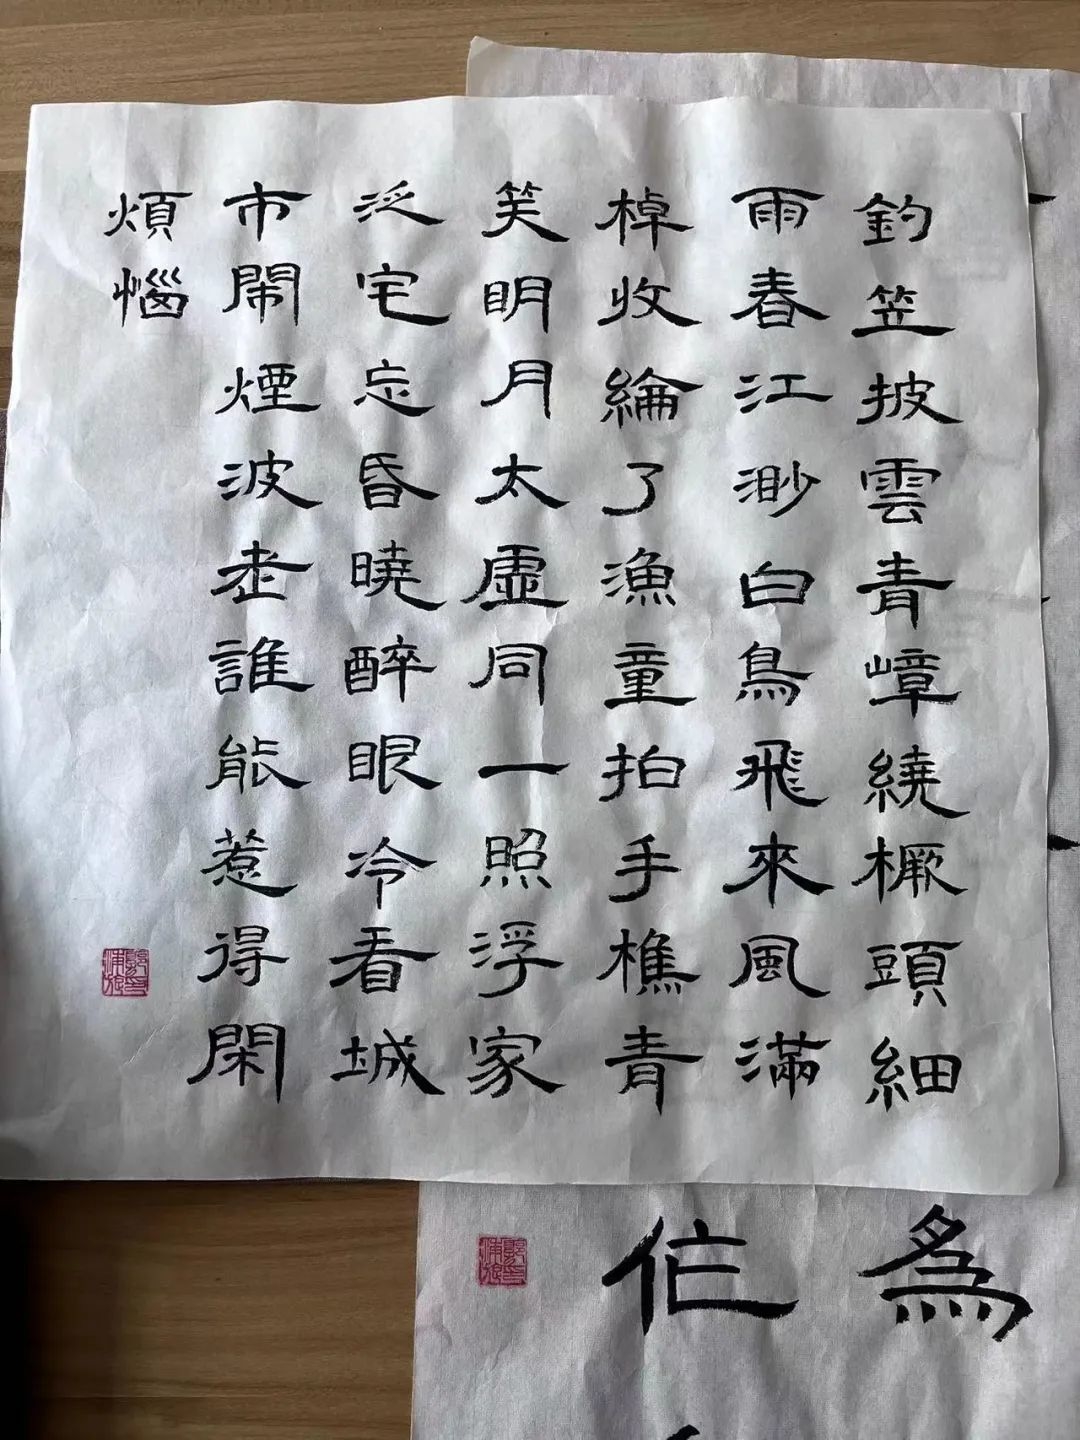 釣笠披雲青嶂繞橛頭細
雨春江渺白鳥飛來風滿
棹收綸了漁童拍手樵青
笑明月太虛同一照浮家
泛宅忘昏曉醉眼冷看城
市鬧煙波老誰能惹得閑
煩惱
為
作